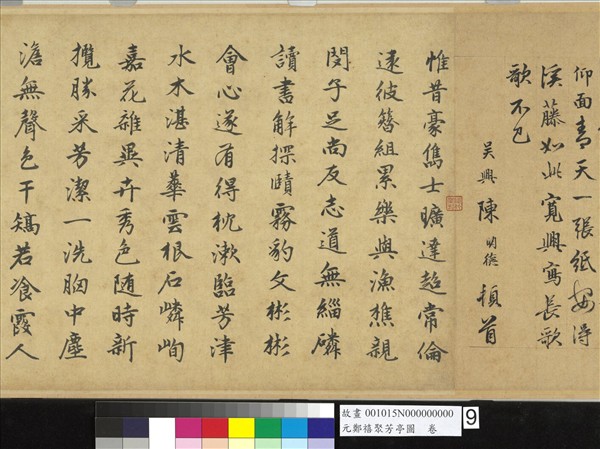 仰面青天一張紙安得
溪藤如此寬興寫長歌
歌不已
吳興陳明德頓首
惟昔豪儁士曠達超常倫
遠彼簪組累樂與漁樵親
閔子足尚友志道無緇磷
讀書解探賾霧豹文彬彬
會心遂有得枕漱臨芳津
水木湛清華雲根石嶙峋
嘉花雜異卉秀色随時新
攬勝采芳潔一洗胸中塵
澹無聲色干矯若飡霞人
故畫 001015N000000000
元鄭禧聚芳亭圖 卷
9